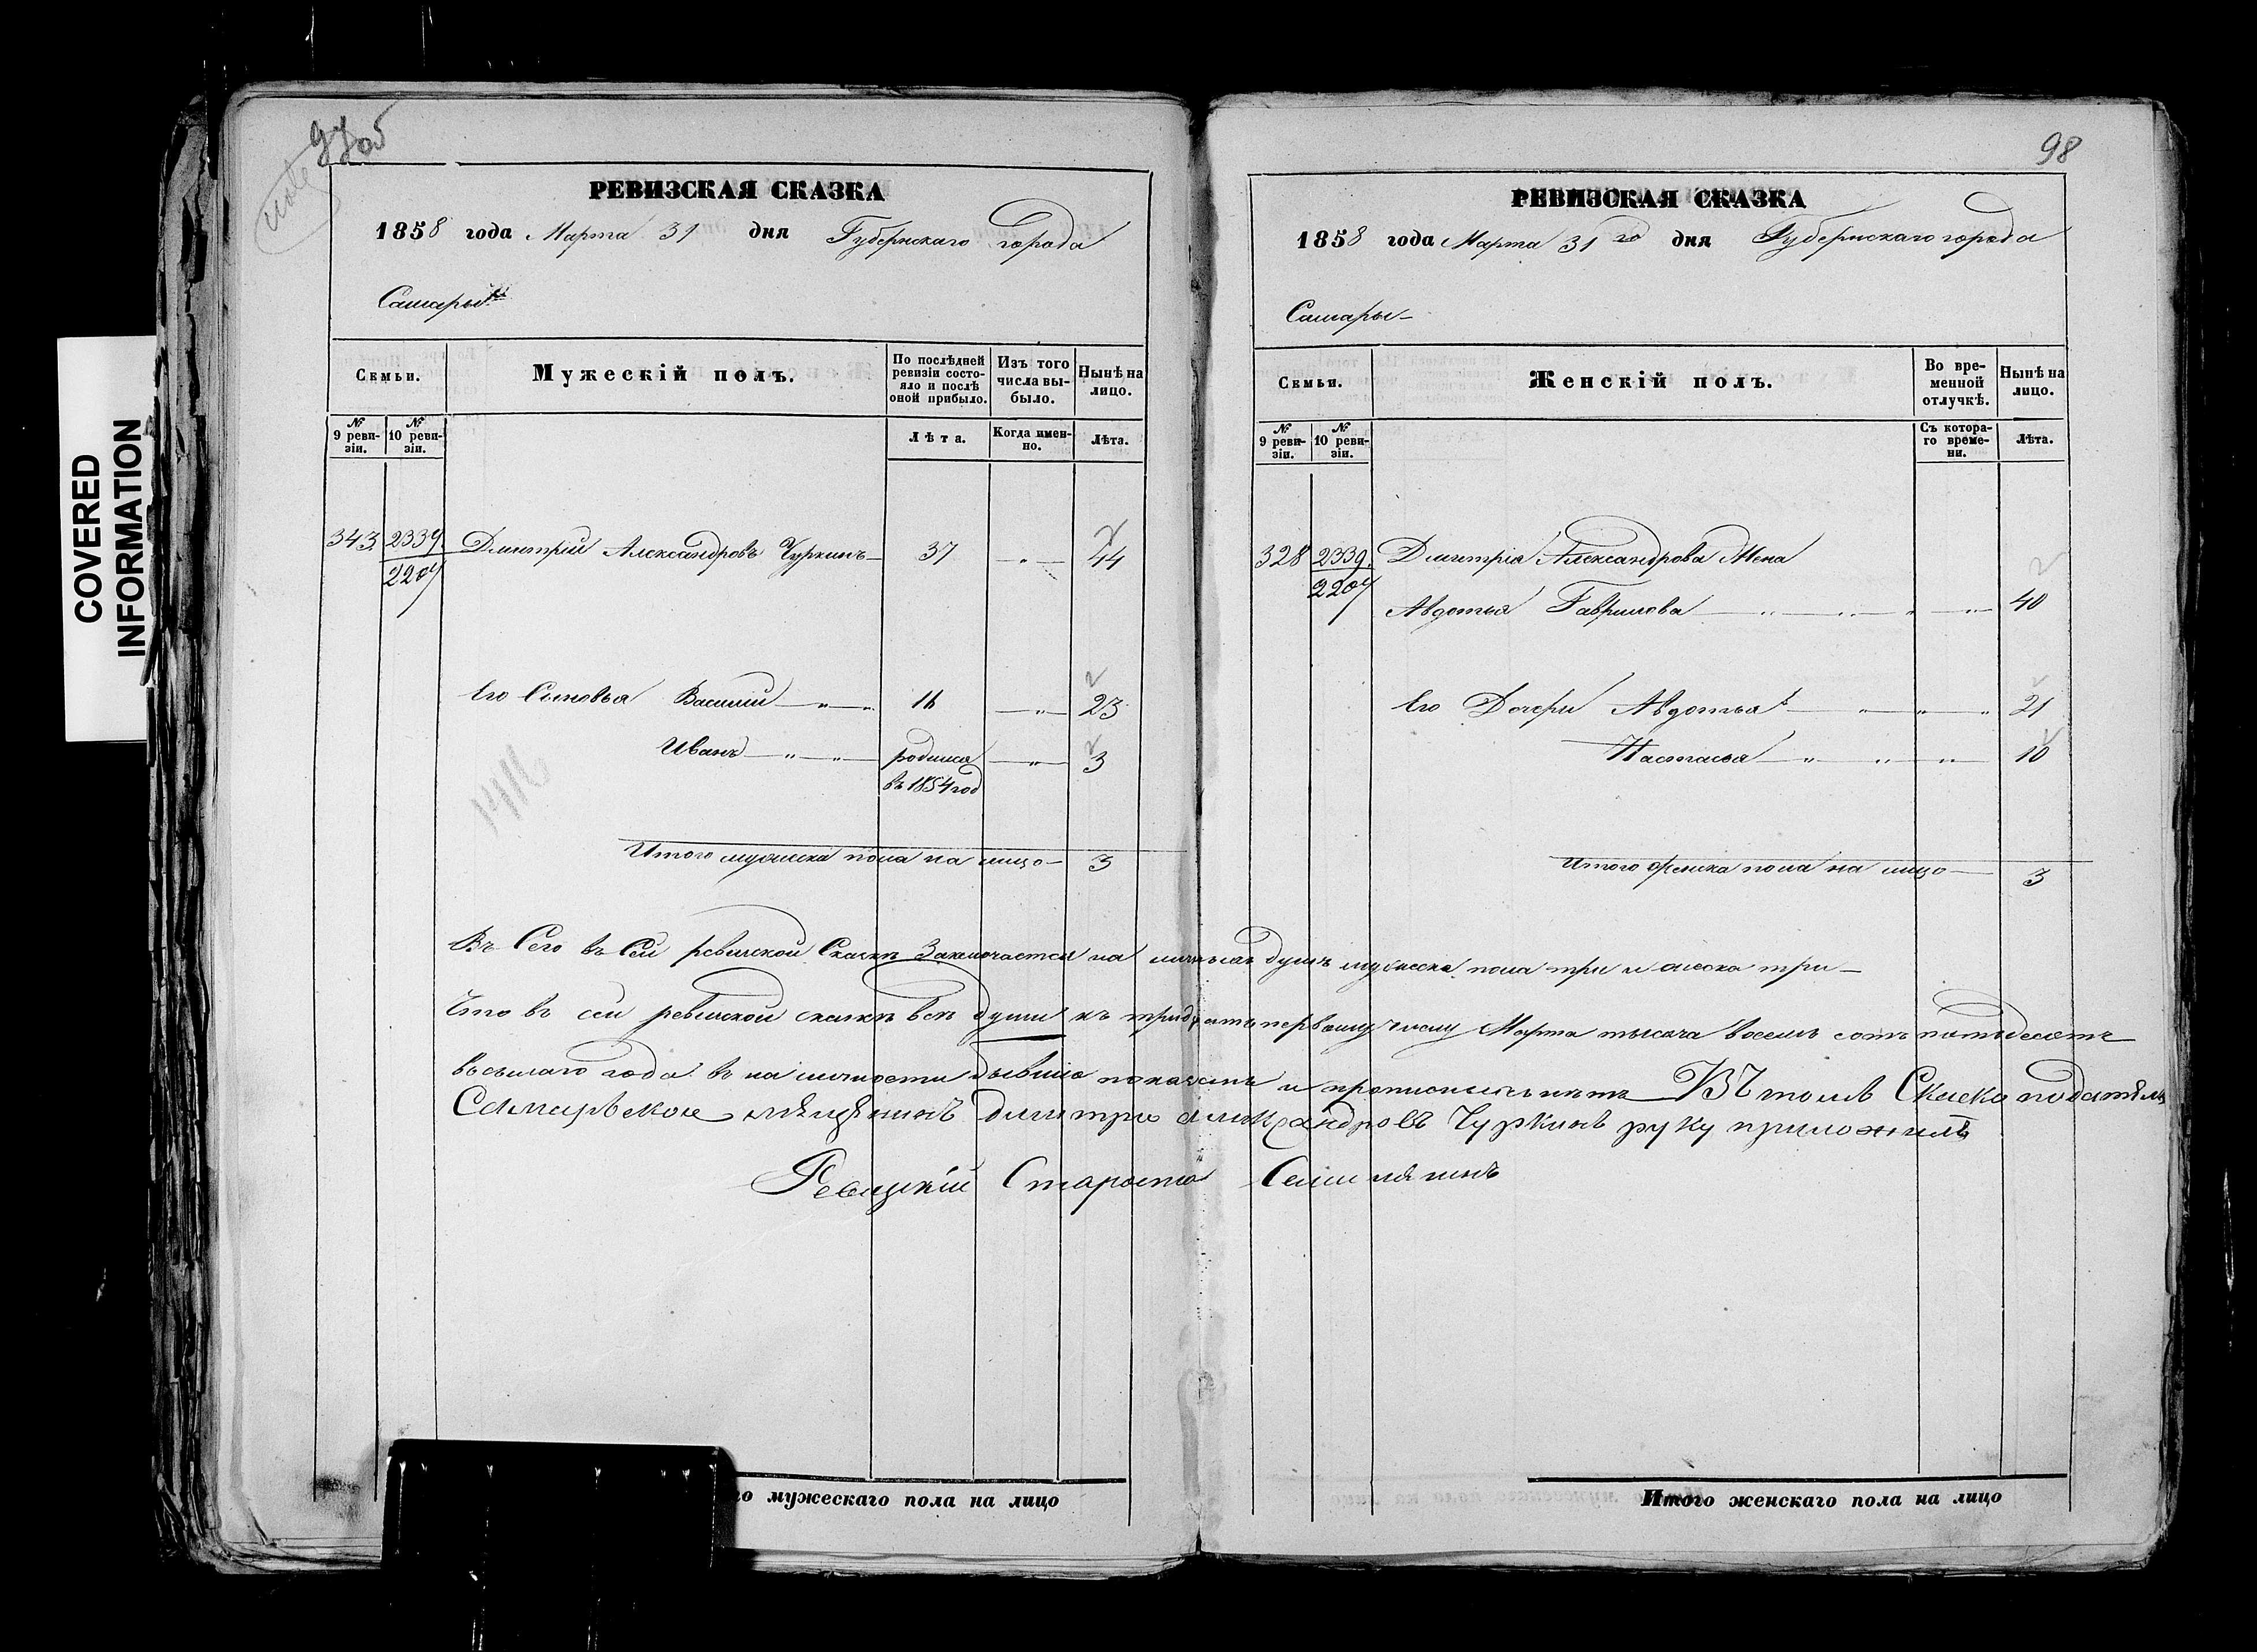 97об
РЕВИЗСКАЯ СКАЗКА
1858 года Марта 31 дня Губернскаго Города
Самары
Семьи.
Мужескій полъ.
По послѣдней ревизіи состо-
яло и послѣ
оной прибыло.
Изъ того
числа вы-
было.
Нынѣ на
лицо.
№ 9 реви-
зіи.
№ 10 реви-
зіи.
Лѣта.
Когда имен-
но.
Лѣта.
343. 2339. Дмитрій Александровъ Чуркинъ 37 „ 44
2207
Его Сыновья Василий „ „ 16 „ 23
Иванъ „ „ родился „ 3
въ 1854 год
Итого мужска пола на лицо 3
98
РЕВИЗСКАЯ СКАЗКА
1858 года Марта 31го дня Губернскаго города
Самары
Семьи.
Женскій полъ.
Во вре-
менной
отлучкѣ.
Нынѣ на
лицо.
№ 9 реви-
зіи.
№ 10 реви-
зіи.
Съ котора-
го време-
ни.
Лѣта.
328 2339. Дмитрія Александрова Жена
2207
Авдотья Гаврилова „ „ „ „ 40
Его Дочери Авдотья „ „ „ 21
Настасья „ „ „ 10
Итого женска пола на лицо 3
Въ Сего въ Сей ревиской Сказкѣ Заключается на душъ мужеска пола три и женска три
Что въ сей ревиской сказкѣ всѣ души къ тридцать первому числу Марта тысяча восемь сотъ
восьмаго года въ на личности показаны и ВЪ томъ Скаске
Самарскои дмитре Чуркинъ руку приложилъ
Староста
го мужескаго пола на лицо
Итого женскаго пола на лицо
COVERED
INFORMATION